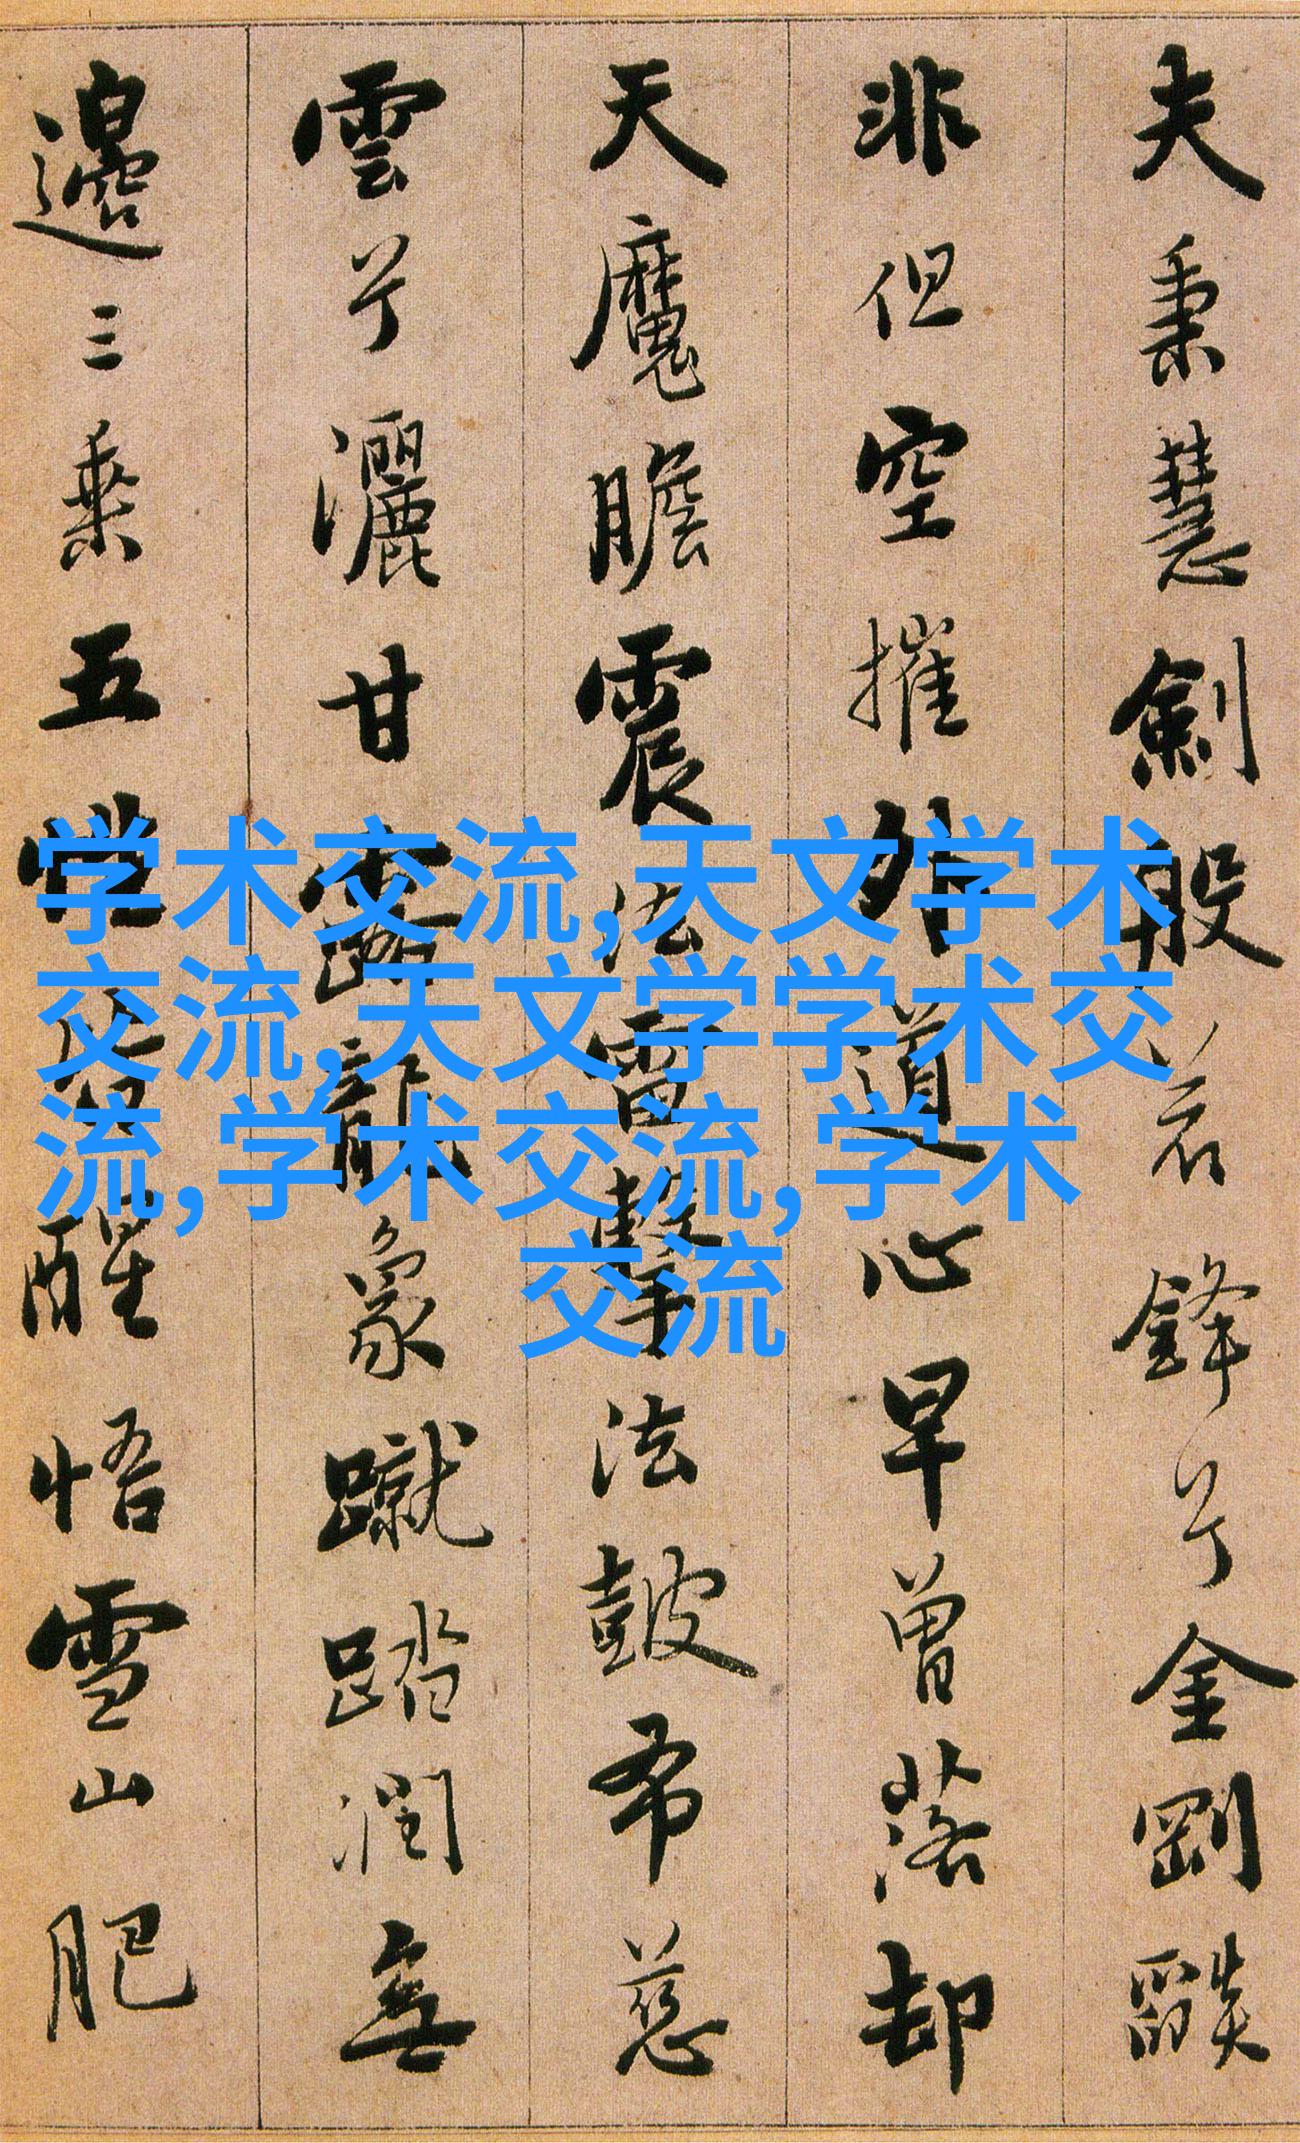 夫秉慧劍般若鋒兮金剛燄
非但空摧外道心早曾落却
天魔膽震法雷擊法皷布慈
雲兮灑甘露龍象蹴踏潤無
邊三乘五皆醒悟雪山肥
学术交流,天文学术
交流,天文学学术交
流,学术交流,学术
交流